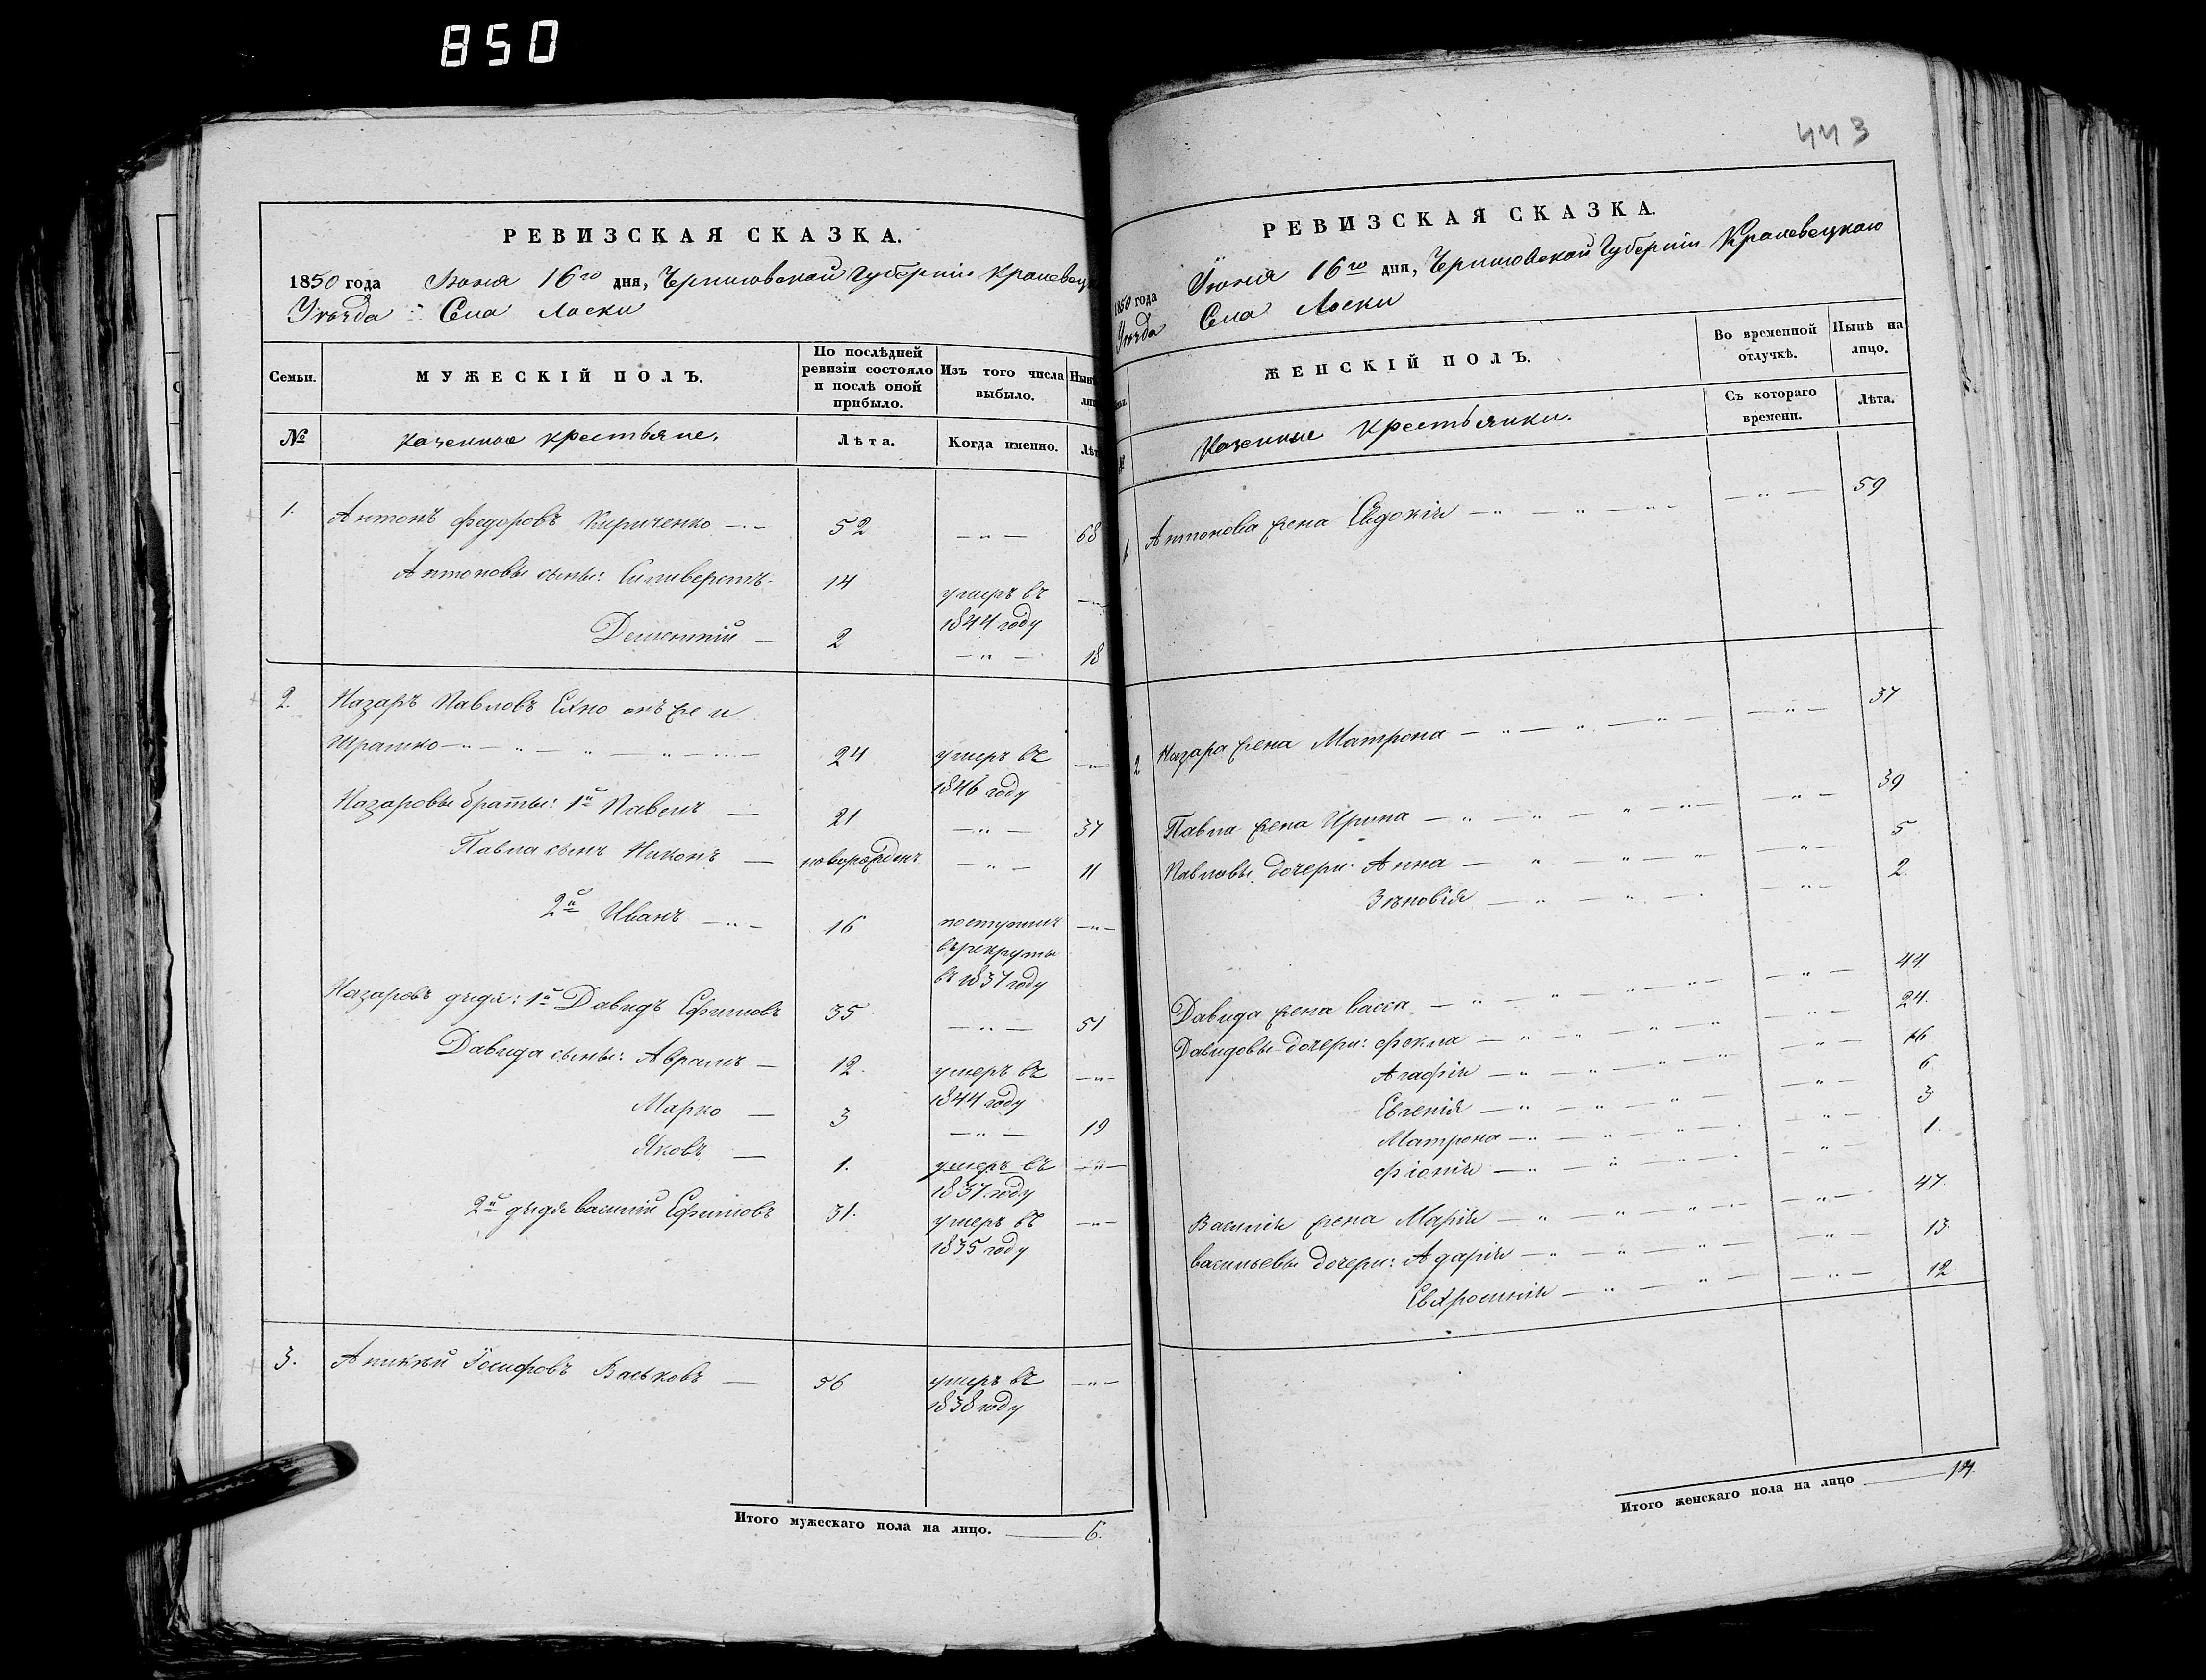 850
РЕВИЗСКАЯ СКАЗКА.
1850 года Іюня 16го дня, Черниговской Губерніи Кролевец
Уѣзда Села Лоски
Семьи.
МУЖЕСКІЙ ПОЛЪ.
По послѣдней ревизіи состояло и послѣ оной прибыло.
Изъ того числа выбыло.
№
казенные крестьяне.
Лѣта.
Когда именно.
1. Антонъ Федоровъ Кириченко 52 68
Антоновы сыны: Силиверстъ 14 умеръ въ
1844 году
Дементій 2 18
2. Назаръ Павловъ Ехно онъ же и
Ирашко 24 умеръ въ
1846 году
Назаровы братья: 1й Павелъ 21 37
Павла сынъ Никонъ новорожден 11
2й Иванъ 16 поступилъ
въ рекруты
въ 1837 году
Назаровъ дядя: 1й Давидъ Ефимовъ 35 51
Давида сыны: Аврамъ 12 умеръ въ
1844 году
Марко 3 19
Яковъ 1. умеръ въ
1837 году
2й дядя Василій Ефимовъ 31. умеръ въ
1835 году
3. Аникѣй Іосифовъ Васьковъ 56 умеръ въ
1838 году
Итого мужескаго пола на лицо. 6.
443
РЕВИЗСКАЯ СКАЗКА.
1850 года Іюня 16го дня, Черниговской Губерніи Кролевецкаго
Уѣзда Села Лоски
ЖЕНСКІЙ ПОЛЪ.
Во временной отлучкѣ.
Нынѣ на лицо.
Казенные крестьянки.
Съ котораго времени.
Лѣта.
1 Антонова жена Евдокія 59
2 Назара жена Матрона 37
Павла жена Ирина 39
Павловы дочери: Анна 5
Зѣновія 2.
Давида жена Васса 44
Давидовы дочери: Фекла 24.
Агафія 16
Евгенія 6
Матрона 3
Фіонія 1.
Василія жена Марія 47.
Васильевы дочери: Адарія 13
Евхросинія 12
Итого женскаго пола на лицо 14.